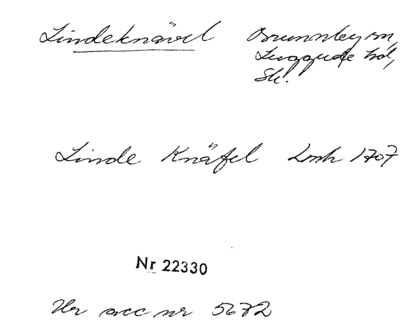 Lindeknävel Brunnby sn,
Luggude hd,
Sk.
Linde Knäfel Lmh 1707
Nr 22330
Ur acc nr 5672